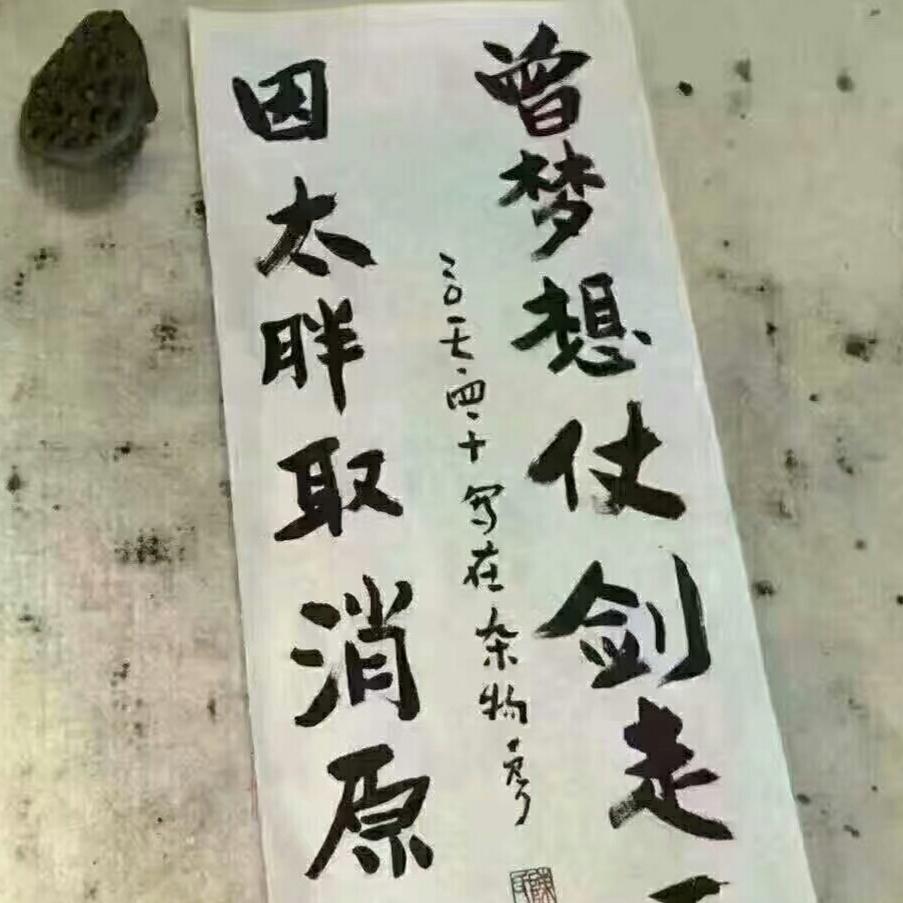 曾梦想仗剑走
因太胖取消原
二〇一七·四·十写在杂物